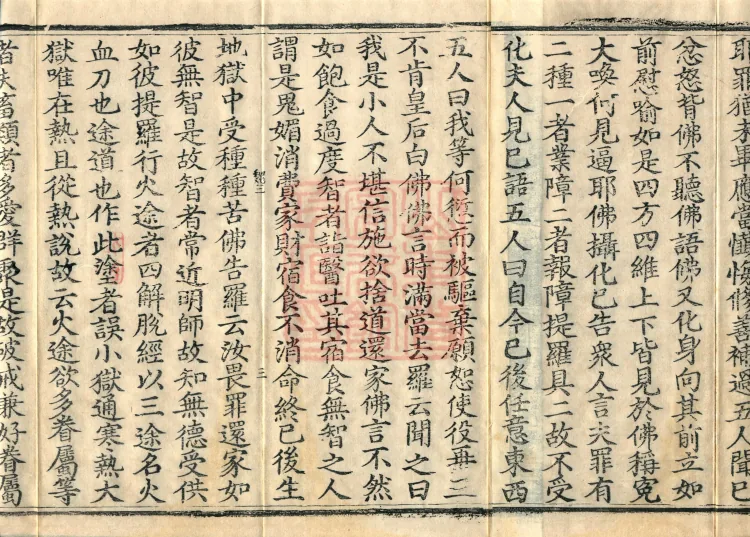 耶罪猶未畢應當懺悔修善補過五人聞已
忿怒背佛不聽佛語佛又化身向其前立如
前慰喻如是四方四維上下皆見於佛稱冤
大喚何見逼耶佛攝化已告眾人言夫罪有
二種一者業障二者報障提羅具二故不受
化夫人見已語五人曰自今已後任意東西
五人曰我等何愆而被驅棄願恕使役無三
不肯皇后白佛佛言時滿當去羅云聞之曰
我是小人不堪信施欲捨道還家佛言不然
如飽食過度智者詣醫吐其宿食無智之人
謂是鬼媚消費家財宿食不消命終已後生
地獄中受種種苦佛告羅云汝畏罪還家如
彼無智是故智者常近明師故知無德受供
如彼提羅行火途者四解脫經以三途名火
血刀也途道也作此塗者誤小獄通寒熱大
獄唯在熱且從熱說故云火途欲多眷屬等
者扶畜類者多愛群聚是故破戒兼好眷屬